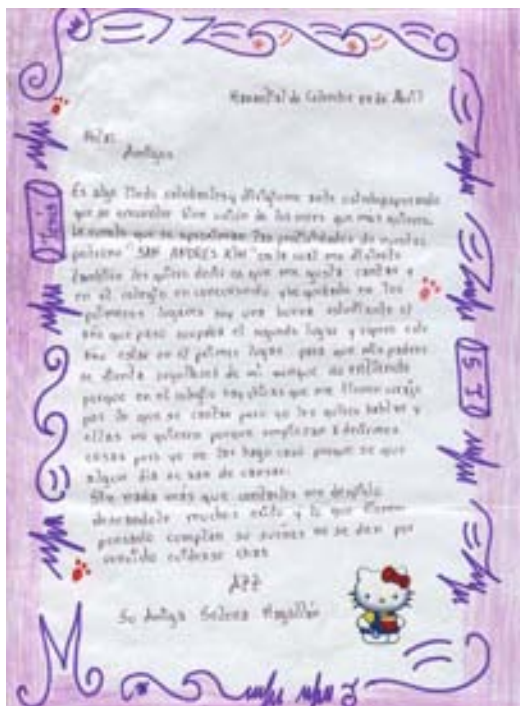 Manantial de Colombia
Hola:
Amigos
Es algo lindo saludarlos y dirigirme ante ustedes esperando
que se encuentren bien unión de los seres que más quieren.
Le cuento que se aproximan las festividades de nuestro
patrono "SAN ANDRES KIM" en la cual me divierto
también les quiero decir es que me gusta cantar y
en el colegio en concursando y he quedado en los
primeros lugares soy una buena estudiante el
año que pasó ocupaba el segundo lugar y espero este
año estar en el primer lugar para que mis padres
se sientan orgullosos de mí aunque no entiendo
porque en el colegio hay chicas que me tienen
por lo que se cantar pero yo les quiero hablar y
ellas no quieren porque empiezan a decirme
cosas pero yo no les hago caso porque se que
algun dia se san de cansar.
Sin nada más que contarles me despido
deseandole muchos exito y lo que tienen
pensado cumplan su sueños no se den por
vencido cuidense chao
ATT
Su Amiga Selena Magallán